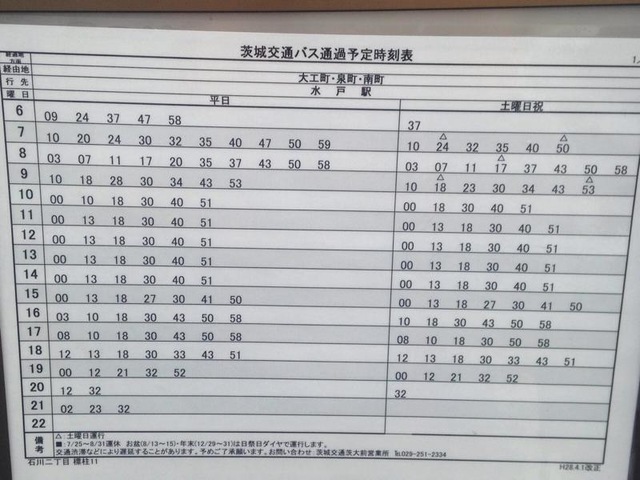 茨城交通バス通過予定時刻表
1/
方面
経由地 大工町・泉町・南町
行先 水戸駅
曜日 平日 土曜日祝
6 09 24 37 47 58 37
△ △
7 10 20 24 30 32 35 40 47 50 59 10 24 32 35 40 50
△
8 03 07 11 17 20 35 37 43 50 58 03 07 11 17 37 43 50 58
△ △
9 10 18 28 30 34 43 53 10 18 23 30 34 43 53
10 00 10 18 30 40 51 00 18 30 40 51
11 00 13 18 30 40 51 00 13 18 30 40 51
12 00 13 18 30 40 51 00 13 18 30 40 51
13 00 13 18 30 40 51 00 13 18 30 40 51
14 00 13 18 30 40 51 00 13 18 30 40 51
15 00 13 18 27 30 41 50 00 13 18 27 30 41 50
16 03 10 18 30 43 50 58 10 18 30 43 50 58
17 08 10 18 30 43 50 58 08 10 18 30 50 58
18 12 13 18 30 33 43 51 12 13 18 30 33 43 51
19 00 12 21 32 52 00 12 21 32 52
20 12 32 32
21 02 23 32
22
備考
△:土曜日運行
■:7/25~8/31運休 お盆(8/13~15)・年末(12/29~31)は日祭日ダイヤで運行します。
交通渋滞などにより遅延することがあります。予めご了承願います。お問い合わせ 茨城交通茨大前営業所 TEL029-251-2334
石川二丁目 標柱11
H28.4.1改正